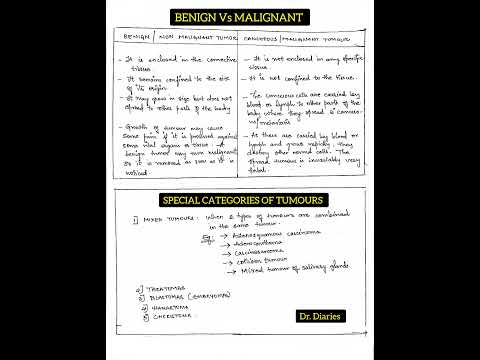 BENIGN Vs MALIGNANT
BENIGN / NON MALIGNANT TUMOR
CANCEROUS / MALIGNANT TUMOUR
- It is enclosed in the connective
tissue
- It remains confined to the site
of its origin.
- It may grow in size but does not
spread to other parts of the body
- Growth of tumour may cause
some pain if it is produced against
some vital organs or tissue. A
benign tumor may turn malignant
so it is removed as soon as it is
noticed.
- It is not enclosed in any specific
tissue.
- It is not confined to the tissue.
- The cancerous cells are carried by
blood or lymph to other parts of the
body where they spread is
metastasis
- As these are carried by blood or
lymph and grows rapidly, they
destroy other normal cells. The
spread tumour is invariably very
fatal.
SPECIAL CATEGORIES OF TUMOURS
1) MIXED TUMOURS: When 2 types of tumours are combined
in the same tumour.
Eg: → Adenosquamous carcinoma
→ Adenoacanthoma
→ Carcinosarcoma
→ Collision tumour
→ Mixed tumour of salivary glands
2) TERATOMAS
3) BLASTOMAS (EMBRYOMAS)
4) HAMARTOMA
5) CHORISTOMA
Dr. Diaries